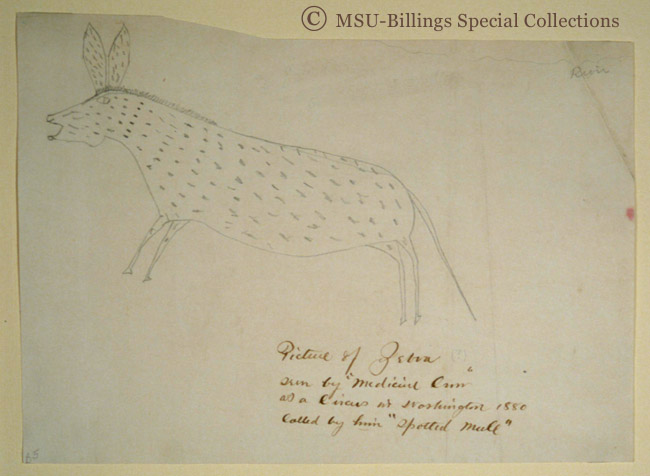 © MSU-Billings Special Collections
River
Picture of Zebra (?)
seen by "Medicine Crow"
at a Circus in Washington 1880
Called by him "Spotted Mule"